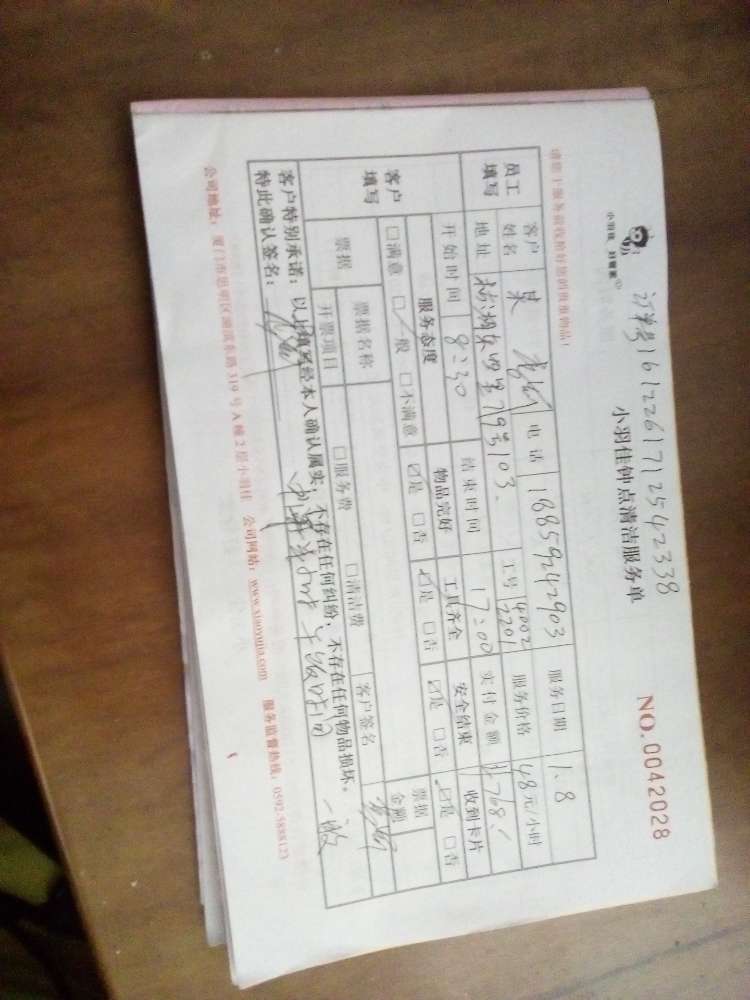 订单号161226171254 2338
小羽佳 好管家
小羽佳钟点清洁服务单
NO.0042028
员工填写
客户姓名
电话 18859242903
服务日期 1.8
地址
79号103.
工号 40002 2201
服务价格 48元/小时
开始时间 8:30
结束时间 17:00
实付金额 768.
客户填写
服务态度
物品完好
工具齐全
安全结束
收到卡片
□满意 ☑一般 □不满意
☑是 □否
☑是 □否
☑是 □否
☑是 □否
票据
票据名称
客户签名
票据金额
开票项目
□服务费 □清洁费
客户特别承诺:以上填写经本人确认属实,不存在任何纠纷,不存在任何物品损坏。
特此确认签名:
公司地址:厦门市思明区湖滨东路319号A幢2层小羽佳 公司网站:www.xiaoyujia.com 服务监督热线:0592-5888123